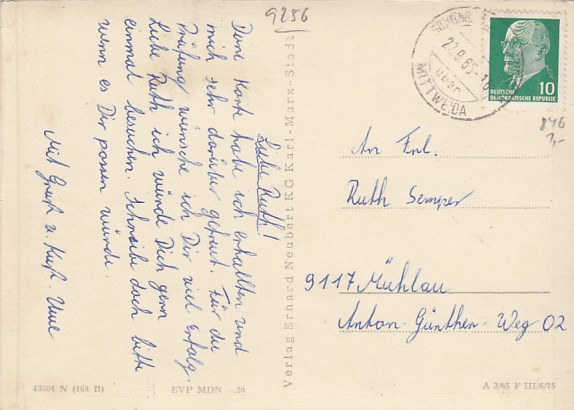 9256
Liebe Ruth!
Deine Karte habe ich erhalten und
mich sehr darüber gefreut. Für die
Prüfung wünsche ich Dir viel Erfolg.
Liebe Ruth ich würde Dich gern
einmal besuchen. Schreibe doch bitte
wenn es Dir passen würde.
Mit Gruß u Kuß. Uwe
Verlag Erhard Neubert KG Karl-Marx-Stadt
43604 N (168 II)
EVP MDN -.20
A 3/65 F III/6/15
über
MITTWEIDA
DEUTSCHE
DEMOKRATISCHE REPUBLIK
10
846
1,-
An Frl.
Ruth Semper
9117 Mühlau
Anton-Günther-Weg 02